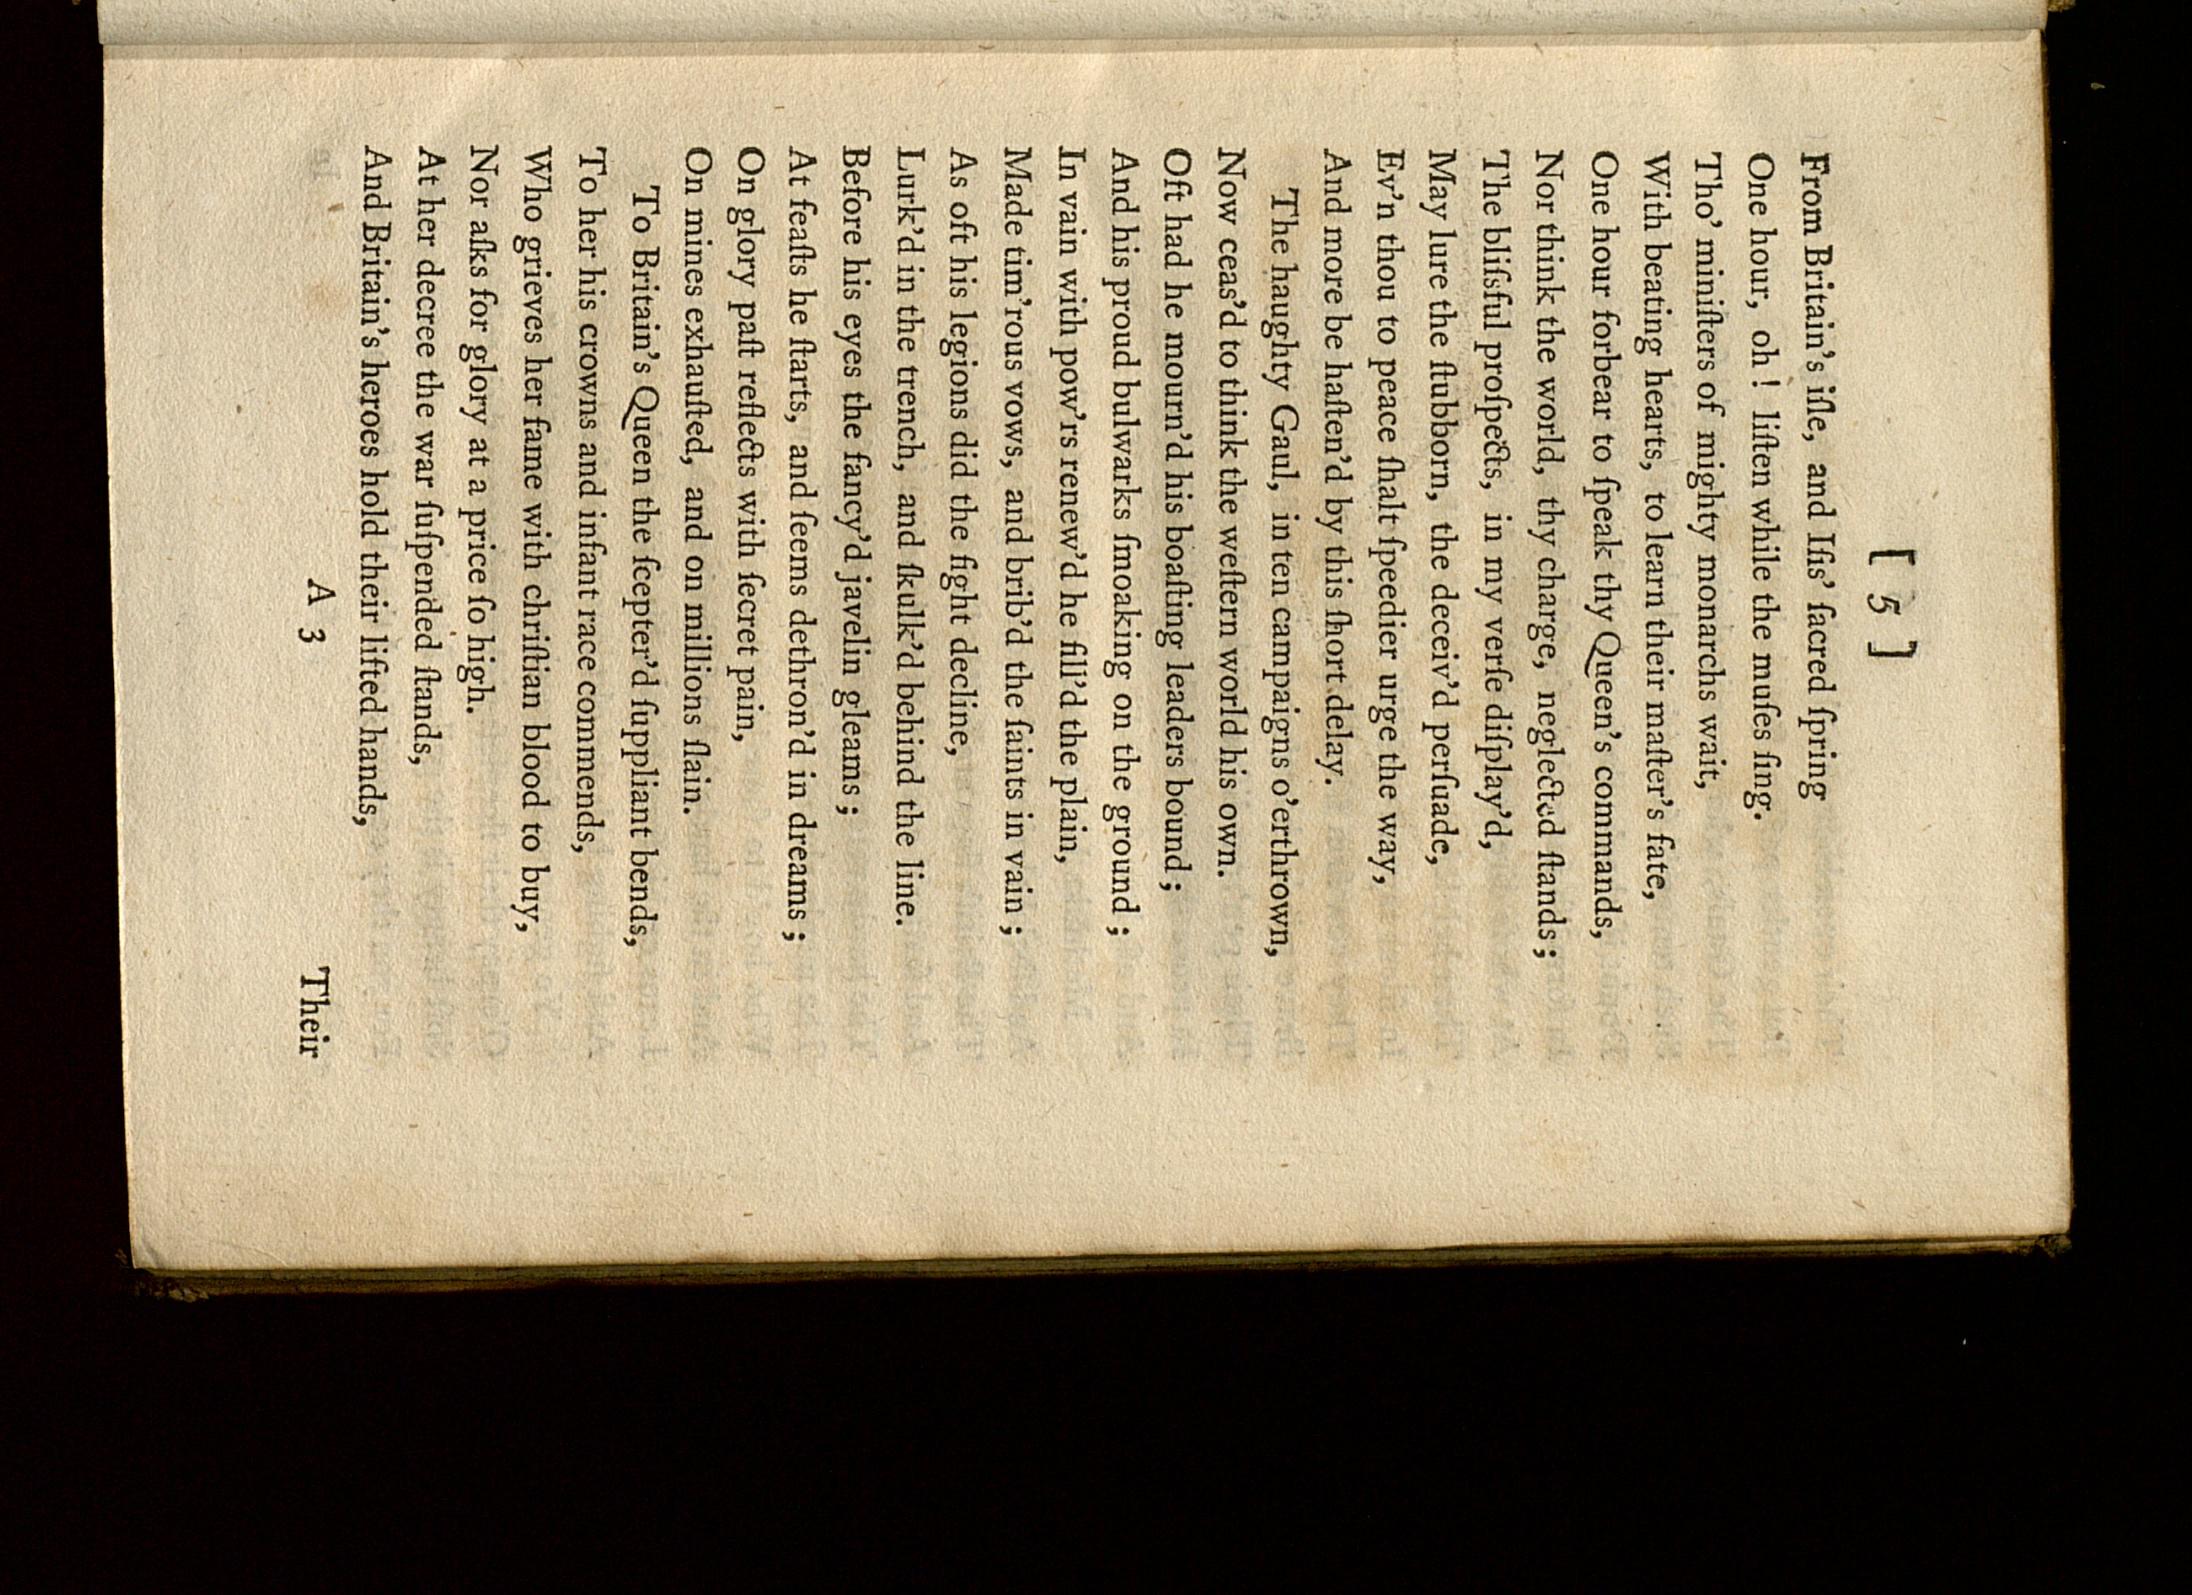 [ 5 ]
From Britain's iſle, and Iſis' ſacred ſpring
One hour, oh! liſten while the muſes ſing.
Tho' miniſters of mighty monarchs wait,
With beating hearts, to learn their maſter's fate,
One hour forbear to ſpeak thy Queen's commands,
Nor think the world, thy charge, neglected ſtands;
The bliſsful proſpects, in my verſe diſplay'd,
May lure the ſtubborn, the deceiv'd perſuade,
Ev'n thou to peace ſhalt ſpeedier urge the way,
And more be haſten'd by this ſhort delay.
The haughty Gaul, in ten campaigns o'erthrown,
Now ceas'd to think the weſtern world his own.
Oft had he mourn'd his boaſting leaders bound;
And his proud bulwarks ſmoaking on the ground;
In vain with pow'rs renew'd he fill'd the plain,
Made tim'rous vows, and brib'd the ſaints in vain;
As oft his legions did the fight decline,
Lurk'd in the trench, and ſkulk'd behind the line.
Before his eyes the fancy'd javelin gleams;
At feaſts he ſtarts, and ſeems dethron'd in dreams;
On glory paſt reflects with ſecret pain,
On mines exhauſted, and on millions ſlain.
To Britain's Queen the ſcepter'd ſuppliant bends,
To her his crowns and infant race commends,
Who grieves her fame with chriſtian blood to buy,
Nor aſks for glory at a price ſo high.
At her decree the war ſuſpended ſtands,
And Britain's heroes hold their lifted hands,
A 3 Their